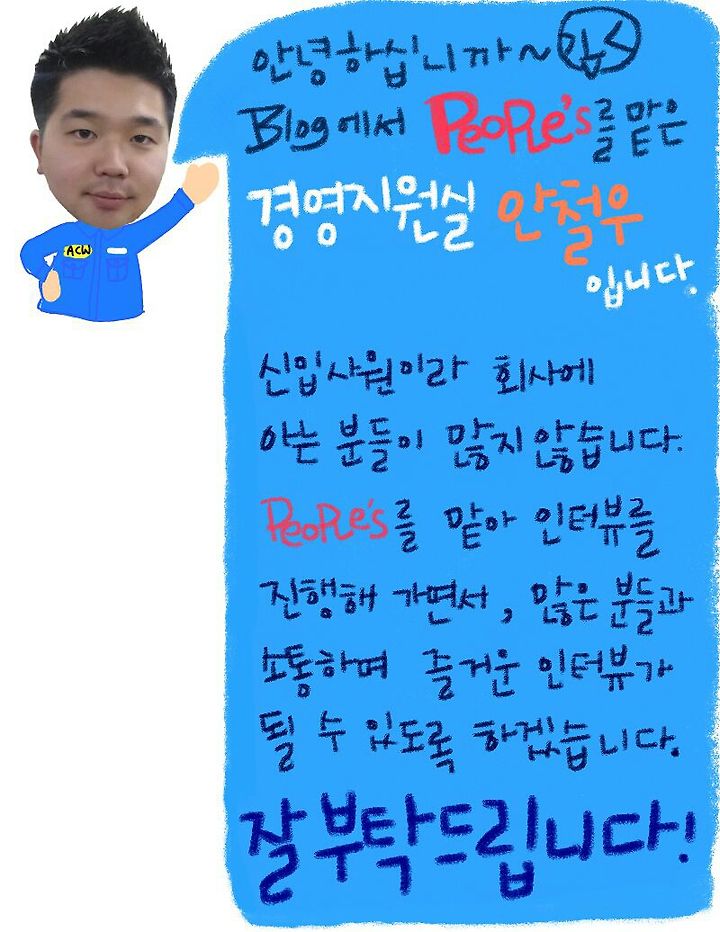 안녕하십니까~
Blog에서 PeoPLe's를 맡은
경영지원실 안철우
입니다.
ACW
신입사원이라 회사에
아는 분들이 많지않습니다.
PeoPLe's를 맡아 인터뷰를
진행해 가면서, 많은 분들과
소통하며 즐거운 인터뷰가
될 수 있도록 하겠습니다.
잘부탁드립니다!